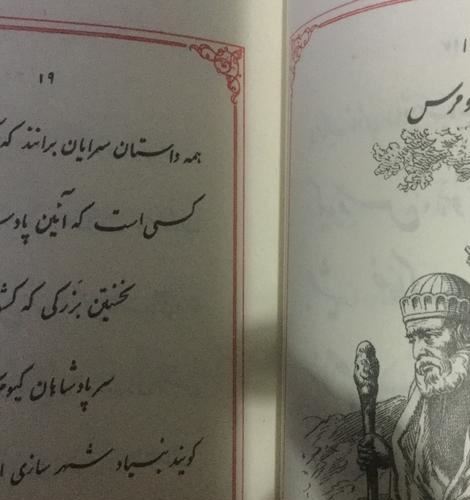 ۱۹
همه داستان سرایان برانند که
کسی است که آئین
نخستین بزرگی که
سر پادشاهان
گویند بنیاد شهر سازی